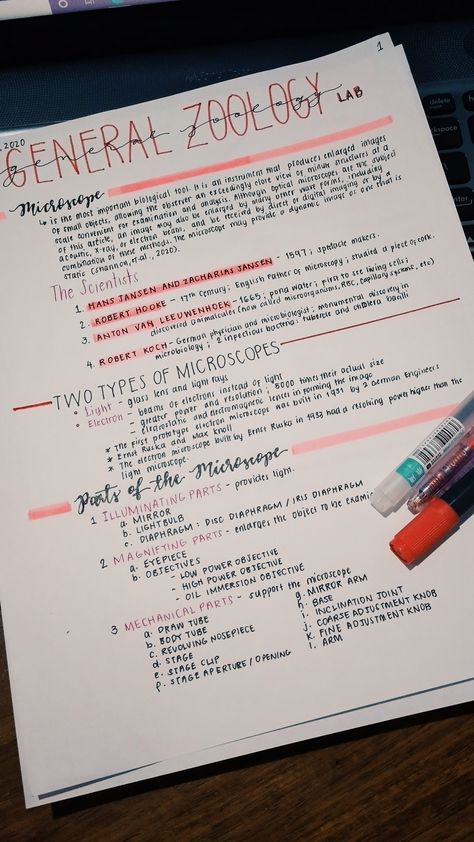 1
2020
GENERAL ZOOLOGY LAB
general zoology
Microscope
↳ is the most important biological tool. It is an instrument that produces enlarged images
of small objects, allowing the observer an exceedingly close view of minute structures at a
scale convenient for examination and analysis. Although optical microscopes are the subject
of this article, an image may also be enlarged by many other wave forms, including
acoustic, X-ray, or electron beam, and be received by direct or digital imaging or by a
combination of these methods. The microscope may provide a dynamic image or one that is
static (Shannon, et al., 2020).
The Scientists
1. HANS JANSEN AND ZACHARIAS JANSEN - 1597; spectacle makers.
2. ROBERT HOOKE - 17th Century; English Father of Microscopy; studied a piece of cork.
3. ANTON VAN LEEUWENHOEK - 1665; pond water; first to see living cells;
discovered animalcules (now called microorganisms, RBC, capillary systems, etc)
4. ROBERT KOCH - German physician and microbiologist; monumental discovery in
microbiology; 2 infectious bacteria: tubercle and cholera bacilli
TWO TYPES OF MICROSCOPES
• Light - glass lens and light rays
• Electron - beams of electrons instead of light
- greater power and resolution; 5000 times their actual size
- electrostatic and electromagnetic lenses in forming the image
* The first prototype electron microscope was built in 1931 by 2 German Engineers
* Ernst Ruska and Max Knoll
* The electron microscope built by Ernst Ruska in 1933 had a resolving power higher than the
light microscope.
Parts of the Microscope
1 ILLUMINATING PARTS - provides light.
a. MIRROR
b. LIGHTBULB
c. DIAPHRAGM: DISC DIAPHRAGM / IRIS DIAPHRAGM
2 MAGNIFYING PARTS - enlarges the object to be
a. EYEPIECE
b. OBJECTIVES
- LOW POWER OBJECTIVE
- HIGH POWER OBJECTIVE
- OIL IMMERSION OBJECTIVE
3 MECHANICAL PARTS - support the microscope
a. DRAW TUBE
b. BODY TUBE
c. REVOLVING NOSEPIECE
d. STAGE
e. STAGE CLIP
f. STAGE APERTURE / OPENING
g. MIRROR ARM
h. BASE
i. INCLINATION JOINT
j. COARSE ADJUSTMENT KNOB
k. FINE ADJUSTMENT KNOB
l. ARM
delete
backspace